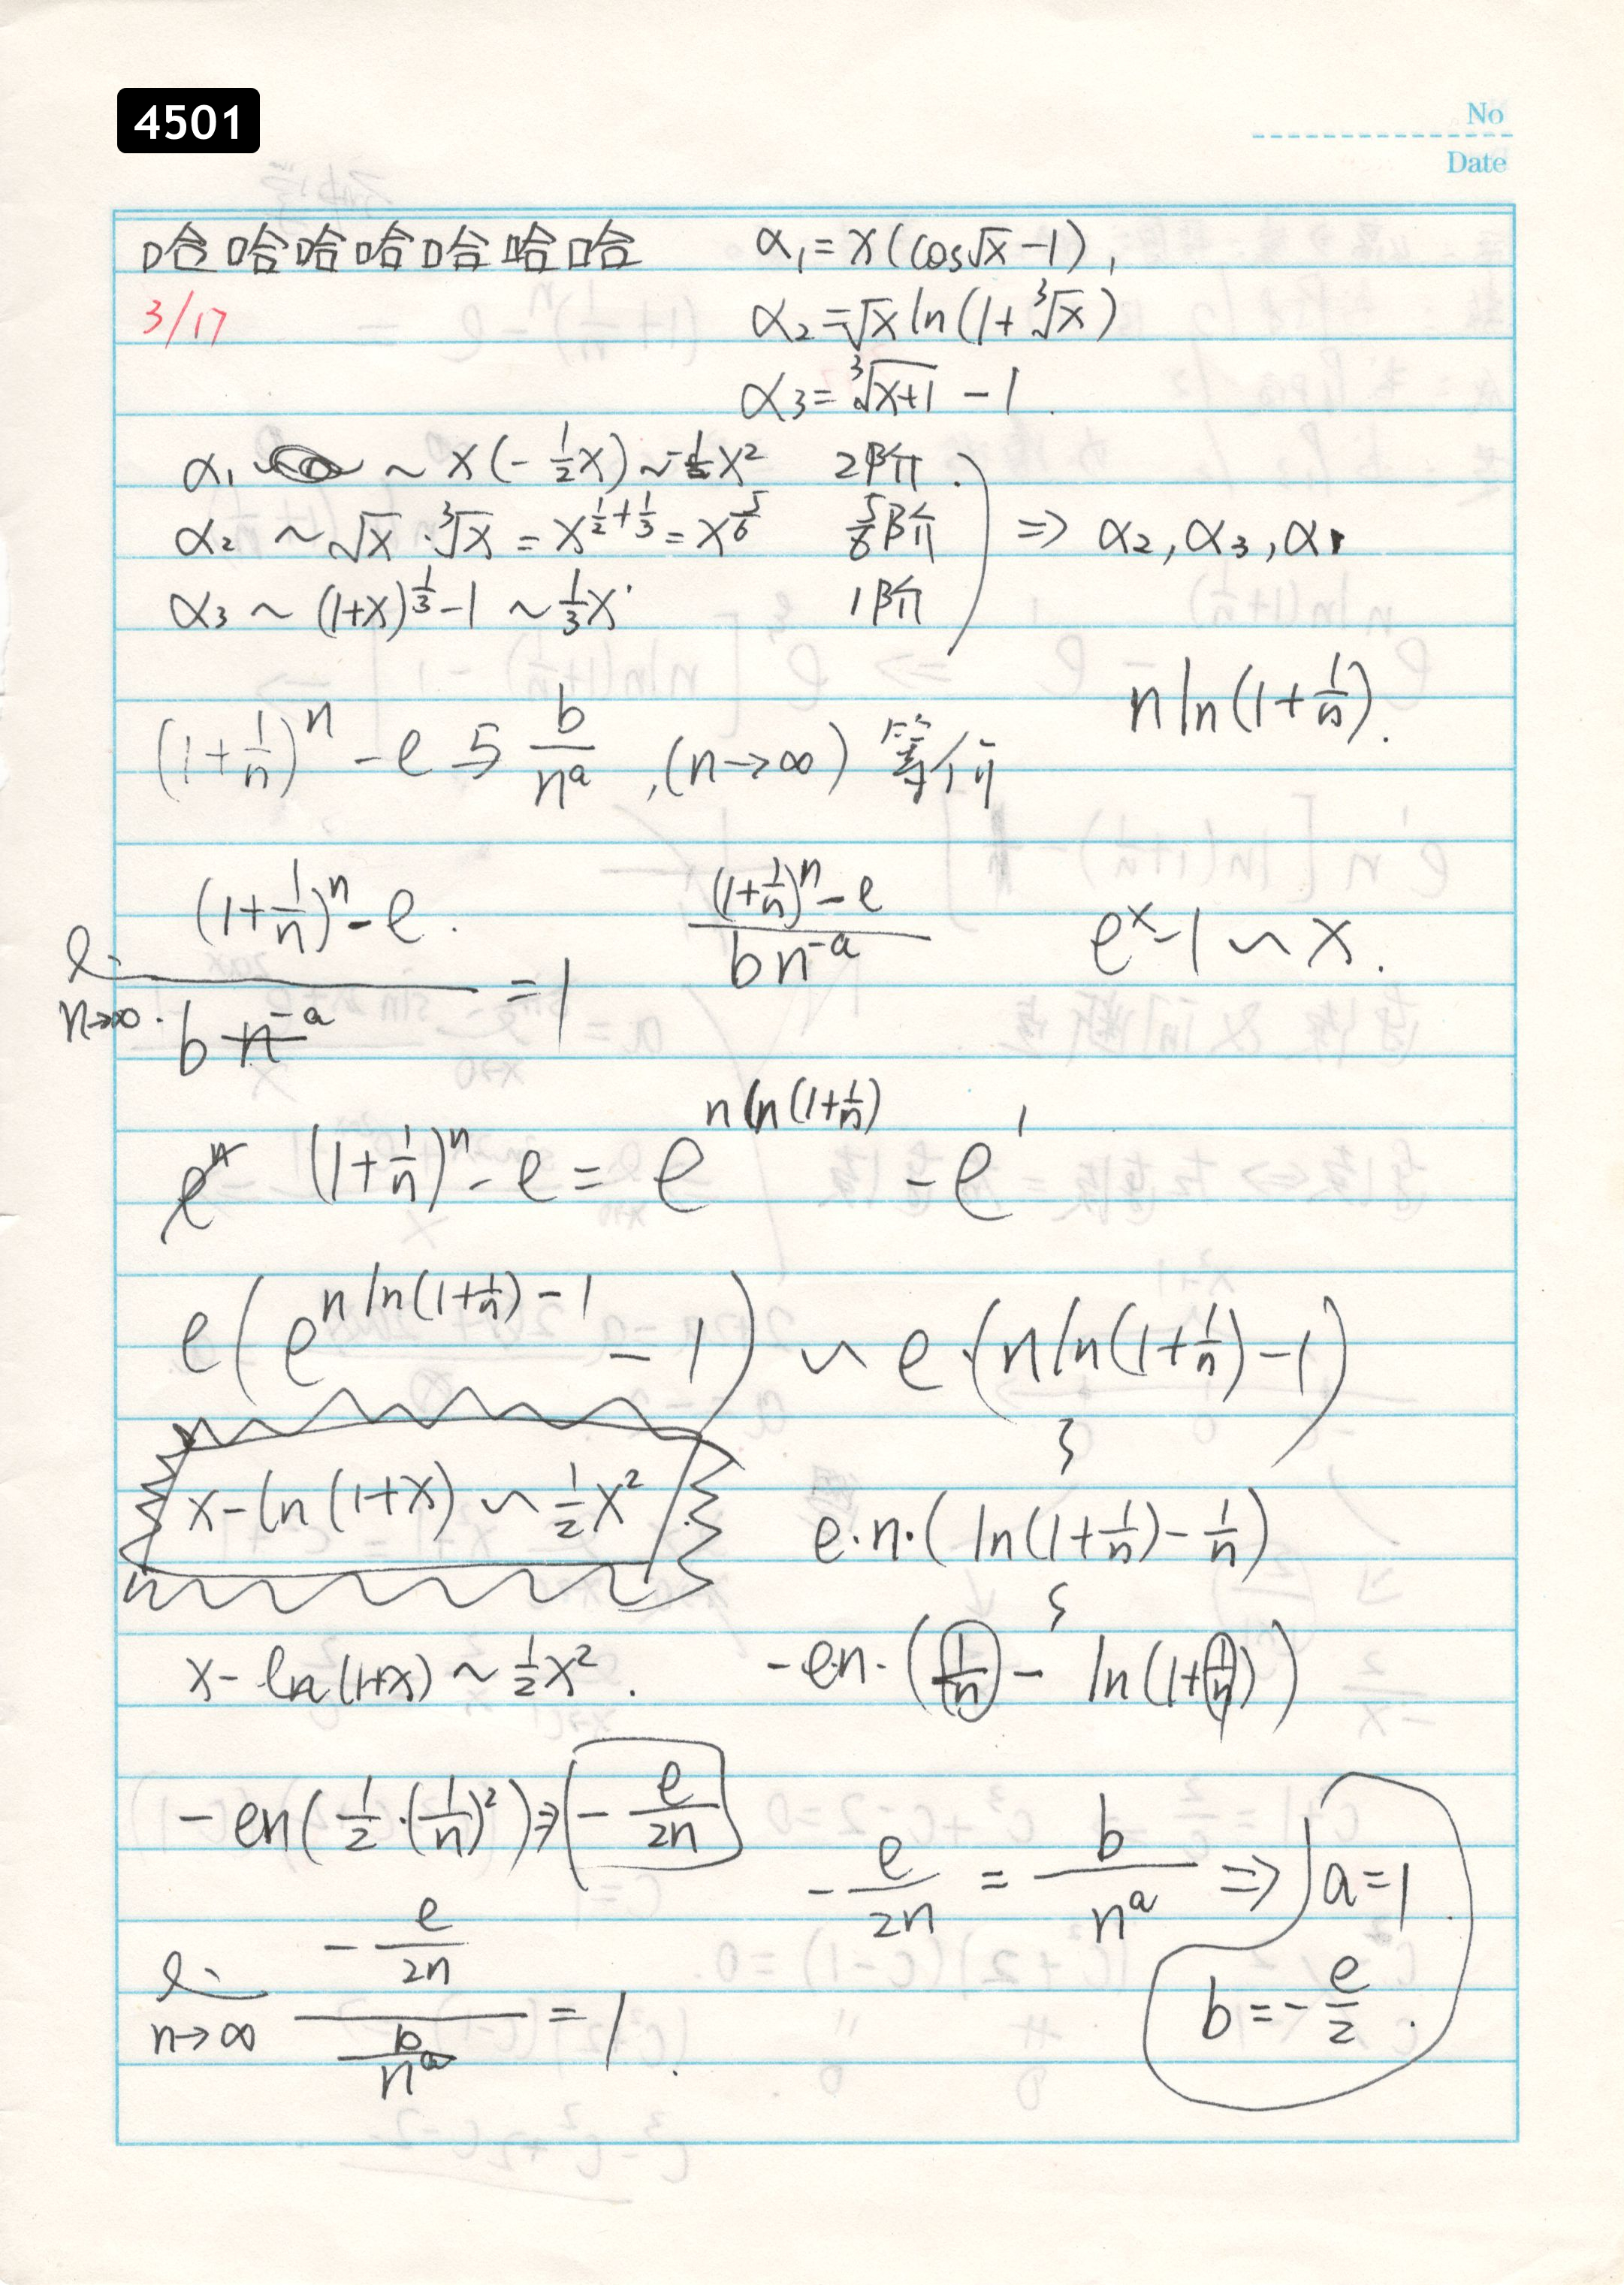 4501
No
Date
哈哈哈哈哈哈哈
3/17
α₁ = x(cos√x - 1),
α₂ = √x ln(1+∛x)
α₃ = ∛(x+1) - 1.
α₁ ~ x(-½x) ~ -½x² 2阶.
α₂ ~ √x·∛x = x^(1/2+1/3) = x^(5/6) 5/6阶 ⇒ α₂, α₃, α₁
α₃ ~ (1+x)^(1/3) - 1 ~ ⅓x 1阶
n ln(1+1/n).
(1+1/n)^n - e 与 b/n^a, (n→∞) 等价
(1+1/n)^n - e.
n→∞. b n^(-a) = 1
((1+1/n)^n - e)/(b n^(-a))
e^x - 1 ~ x.
(1+1/n)^n - e = e^(n ln(1+1/n)) - e^1
e(e^(n ln(1+1/n) - 1) - 1) ~ e·(n ln(1+1/n) - 1)
x - ln(1+x) ~ ½x²
e·n·(ln(1+1/n) - 1/n)
x - ln(1+x) ~ ½x².
-en·(1/n - ln(1+1/n))
-en(½·(1/n)²) ⇒ -e/(2n)
-e/(2n) = b/n^a ⇒ a=1.
b = -e/2.
n→∞ (-e/(2n))/(b/n^a) = 1.